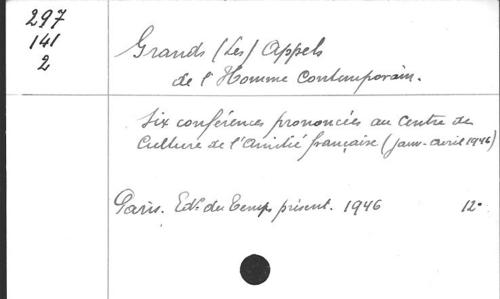 297
141
2
Grands (Les) Appels
de l'Homme Contemporain.
Six conférences prononcées au Centre de
Culture de l'Amitié française (janv-avril 1946)
Paris. Edns du Temps présent. 1946 12°